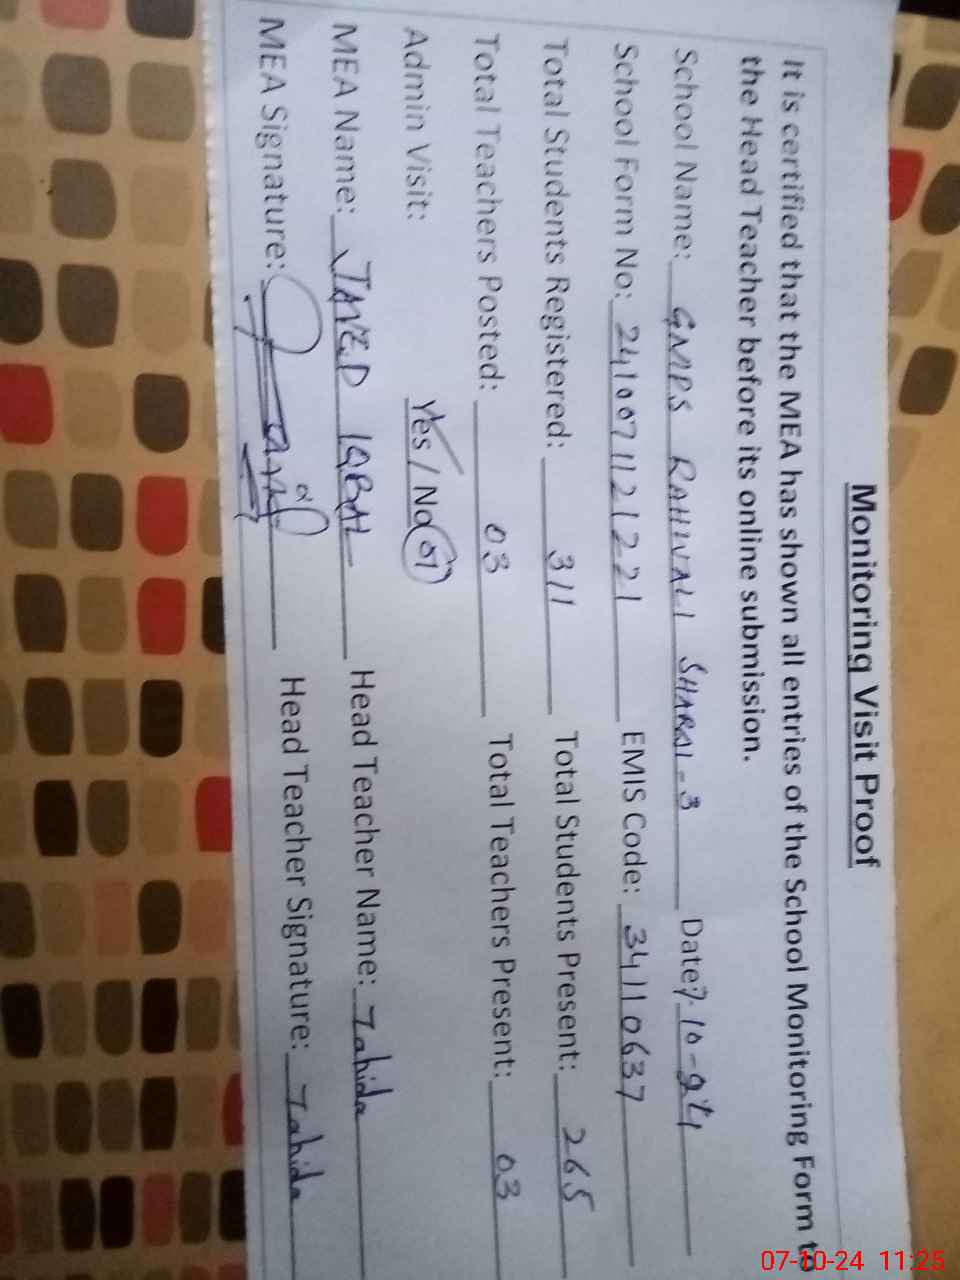 Monitoring Visit Proof
It is certified that the MEA has shown all entries of the School Monitoring Form to
the Head Teacher before its online submission.
School Name: GMPS RAHWALI SHARQI-3 Date: 7-10-24
School Form No: 24100711121221 EMIS Code: 34110637
Total Students Registered: 311 Total Students Present: 265
Total Teachers Posted: 03 Total Teachers Present: 03
Admin Visit: Yes / No 01
MEA Name: JAVED IQBAL Head Teacher Name: Zahida
MEA Signature: Head Teacher Signature: Zahida
07-10-24 11:25